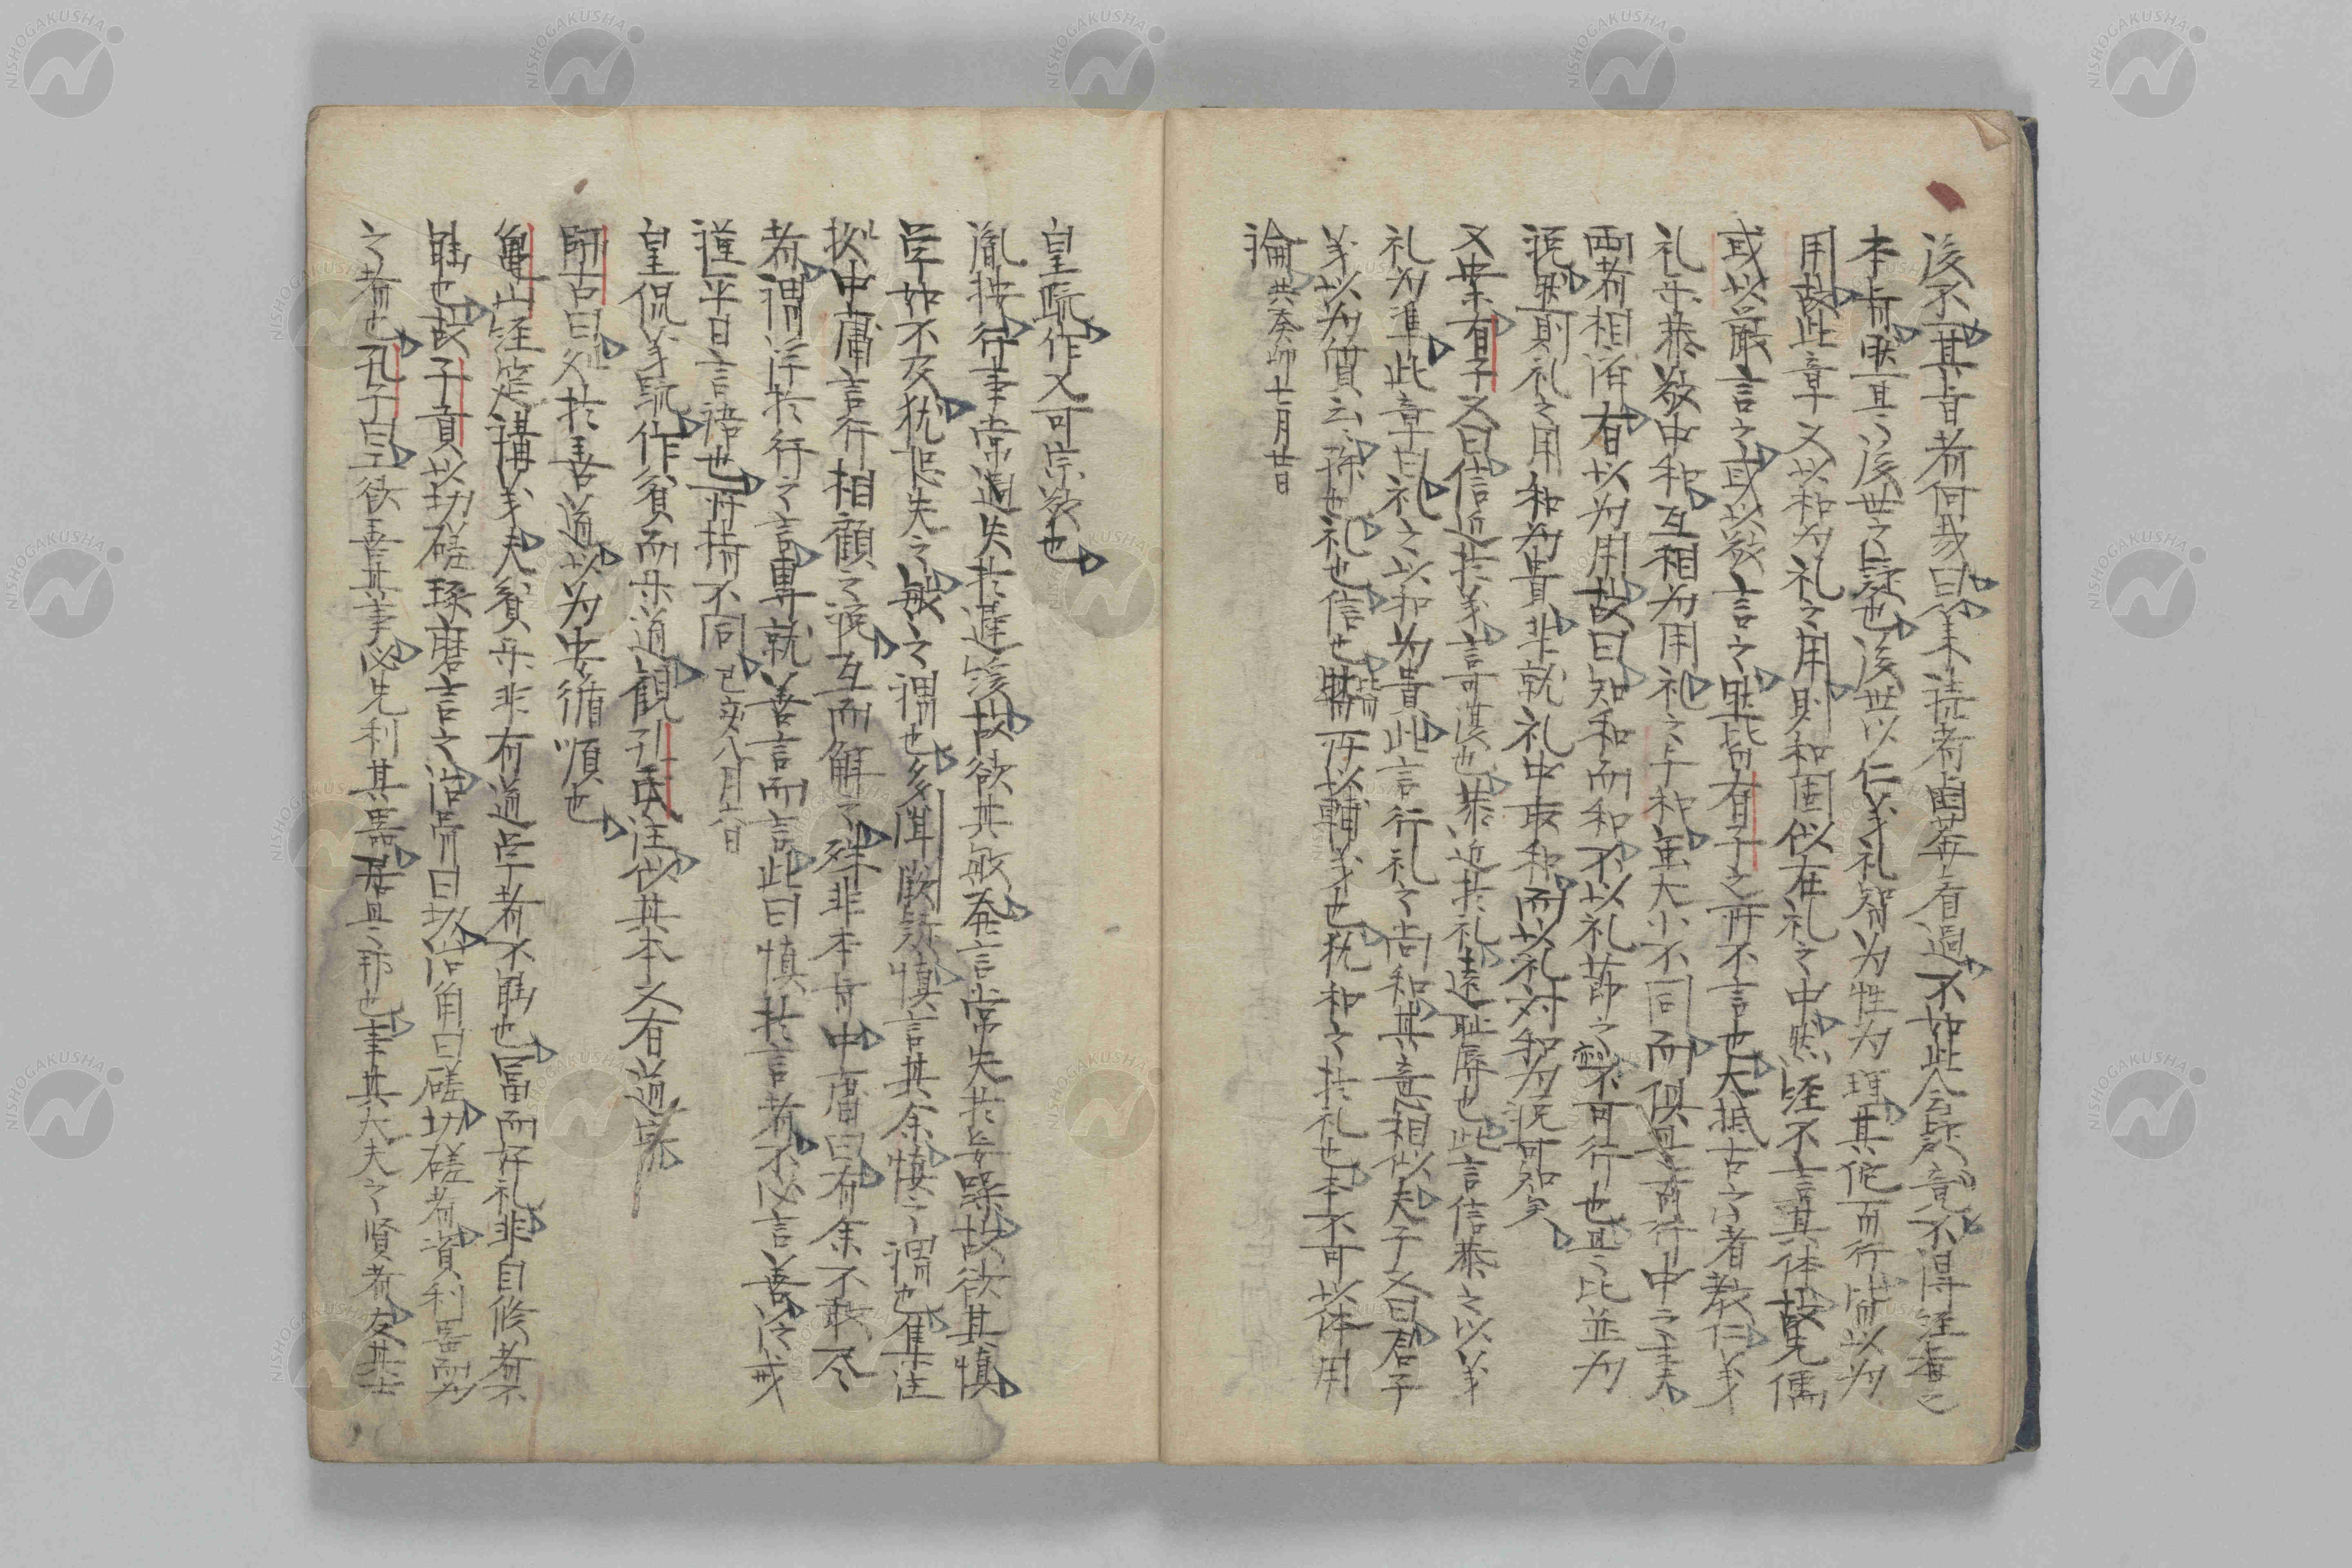 後不一其旨者何哉曰笨未読者由葬看過不如此会疑竟不得経者之
本旨然其々後世之疑也後世以仁義礼智为性为理其佗而行皆以为
用故此章又以和为礼之用則和固似在礼之中然経不言其体故先儒
或以厳言之或以敬言之然皆有子之所不言也大抵古之者教仁義
礼楽恭敬中和互相为用礼之与和虽大小不同而俱是徳行中之事
両者相済有以为用故曰知和而和不以礼節之亦不可行也其々比並为
説然則礼之用和为貴非就礼中取和而以礼対和为説可知矣
又葉有子又曰信近於義言可復也恭近於礼遠恥辱也此言信恭之以義
礼为準此章曰礼之以和为貴此言行礼之尚和其意相似夫子又曰君子
義以为質云孫也礼也信也皆所以輔義也犹和之於礼也本不可以体用
論 癸卯七月廿日
皇疏作又可宗敬也
胤按行事常過失於遅緩故欲其敏発言常失於妄躁故欲其慎
学如不及犹恐失之敏之謂也多聞闕疑慎言其余慎之謂也集注
拠中庸言行相顧之説互而解之殊非本旨中庸曰有余不敢尽
者謂洋於行之言専就善言而言此曰慎於言者不必言善汎戒
謹平日言語也所指不同 己亥八月六日
皇侃義疏作貧而楽道観孔注似其本又有道字
師古曰久於善道以为安循順也
亀山経筵講義夫貧楽非有道学者不能也冨而好礼非自修者不
能也故子貢以切磋琢磨言之治骨曰切治角曰磋切磋者資利器而为
之者也孔子曰工欲善其事必先利其器居是邦也事其大夫之賢者友其士